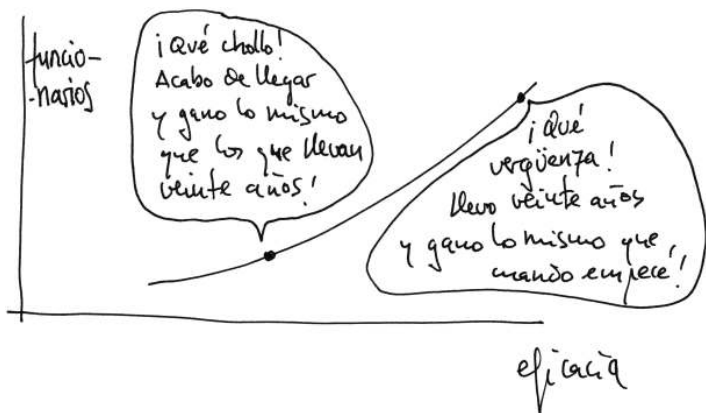 funcio-
-narios
¡Qué chollo!
Acabo de llegar
y gano lo mismo
que los que llevan
veinte años!
¡Qué
vergüenza!
llevo veinte años
y gano lo mismo que
cuando empecé!
eficacia